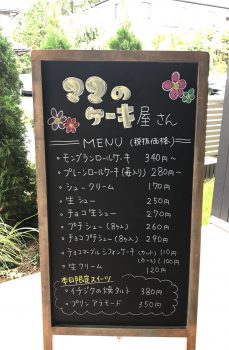 ママの
ケーキ屋さん
MENU (税抜価格)
・モンブランロールケーキ 340円〜
・プレーンロールケーキ(苺入り) 280円〜
・シュークリーム 170円
・生シュー 250円
・チョコ生シュー 270円
・プチシュー(8ヶ入) 260円
・チョコプチシュー(8ヶ入) 290円
・チョコマーブルシフォンケーキ(カット) 110円
(ホール) 1,100円
・生クリーム 120円
本日限定スイーツ
・イチジクの焼タルト 380円
・プリンアラモード 350円